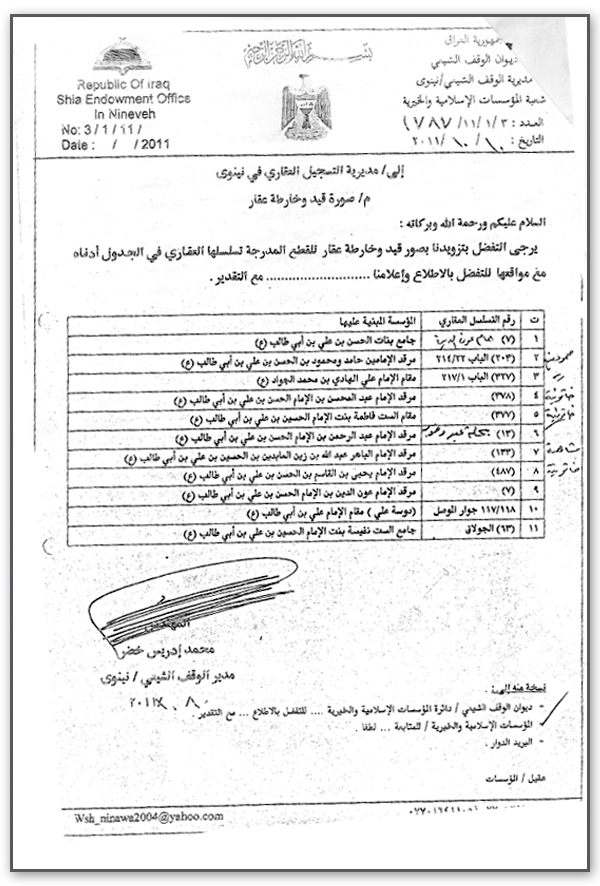 جمهورية العراق
ديوان الوقف الشيعي
مديرية الوقف الشيعي/نينوى
شعبة المؤسسات الإسلامية والخيرية
العدد: ٣/١/١١/ ٧٨٧)
التاريخ: ١٠/ ١٠/ ٢٠١١
بسم الله الرحمن الرحيم
Republic Of Iraq
Shia Endowment Office
In Nineveh
No: 3/1/11/
Date : / / 2011
إلى/ مديرية التسجيل العقاري في نينوى
م/ صورة قيد وخارطة عقار
السلام عليكم ورحمة الله وبركاته :
يرجى التفضل بتزويدنا بصور قيد وخارطة عقار للقطع المدرجة تسلسلها العقاري في الجدول أدناه
مع مواقعها للتفضل بالاطلاع وإعلامنا ............................ مع التقدير .
ت رقم التسلسل العقاري المؤسسة المبنية عليها
١ (٧) جامع بنات الحسن بن علي بن أبي طالب (ع)
٢ (٢٠٣) الباب ٢١٤/٢٢ مرقد الإمامين حامد ومحمود بن الحسن بن علي بن أبي طالب (ع)
٣ (٣٢٧) الباب ٢١٧/١ مقام الإمام علي الهادي بن محمد الجواد (ع)
٤ (٣٧٨) مرقد الإمام عبد المحسن بن الإمام الحسن بن علي بن أبي طالب (ع)
٥ (٣٧٧) مقام الست فاطمة بنت الإمام الحسين بن علي بن أبي طالب (ع)
٦ (١٣) مرقد الإمام عبد الرحمن بن الإمام الحسن بن علي بن أبي طالب (ع)
٧ (١٣٣) مرقد الإمام الباهر عبد الله بن زين العابدين بن الحسين بن علي بن أبي طالب (ع)
٨ (٤٨٧) مرقد الإمام يحيى بن القاسم بن الحسن بن علي بن أبي طالب (ع)
٩ (٧) مرقد الإمام عون الدين بن الإمام الحسن بن علي بن أبي طالب (ع)
١٠ ١١٧/١١٨ جوار الموصل (دوسة علي ) مقام الإمام علي بن أبي طالب (ع)
١١ (٦٣) الجولاق جامع الست نفيسة بنت الإمام الحسين بن علي بن أبي طالب (ع)
خاتونية
خاتونية
شاهدة
خاتونية
المهندس
محمد إدريس خضر
مدير الوقف الشيعي / نينوى
نسخة منه إلى :
- ديوان الوقف الشيعي / دائرة المؤسسات الإسلامية والخيرية .... للتفضل بالاطلاع ... مع التقدير .
- المؤسسات الإسلامية والخيرية / للمتابعة ... لطفا .
- البريد الدوار .
عقيل / المؤسسات
Wsh_ninawa2004@yahoo.com